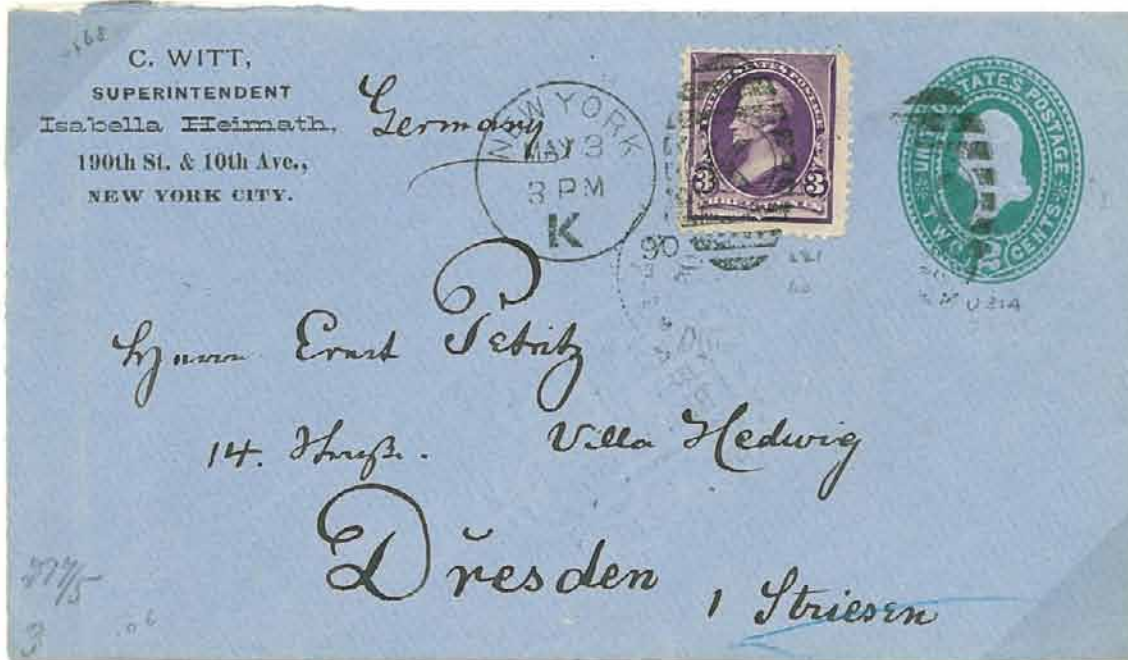 C. WITT,
SUPERINTENDENT
Isabella Heimath,
190th St. & 10th Ave.,
NEW YORK CITY.
Germany
NEW YORK
MAY 3
3 PM
K
90
UNITED STATES POSTAGE
3 3
UNITED STATES POSTAGE
TWO 2 CENTS
Herrn Ernst Petritz
14. Straße. Villa Hedwig
Dresden / Striesen